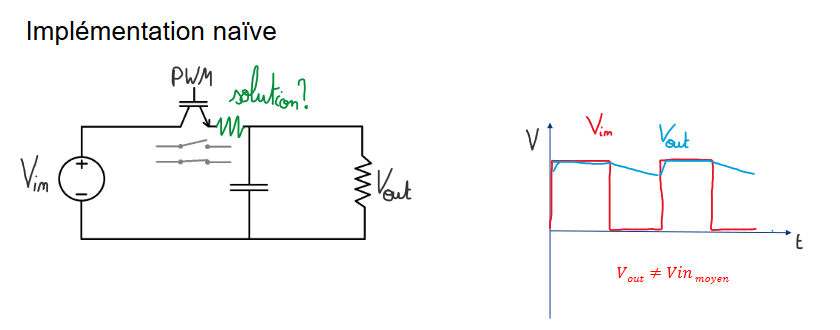 Implémentation naïve
PWM
solution?
Vin
+
−
Vout
V
Vin
Vout
t
V out ≠ Vin moyen